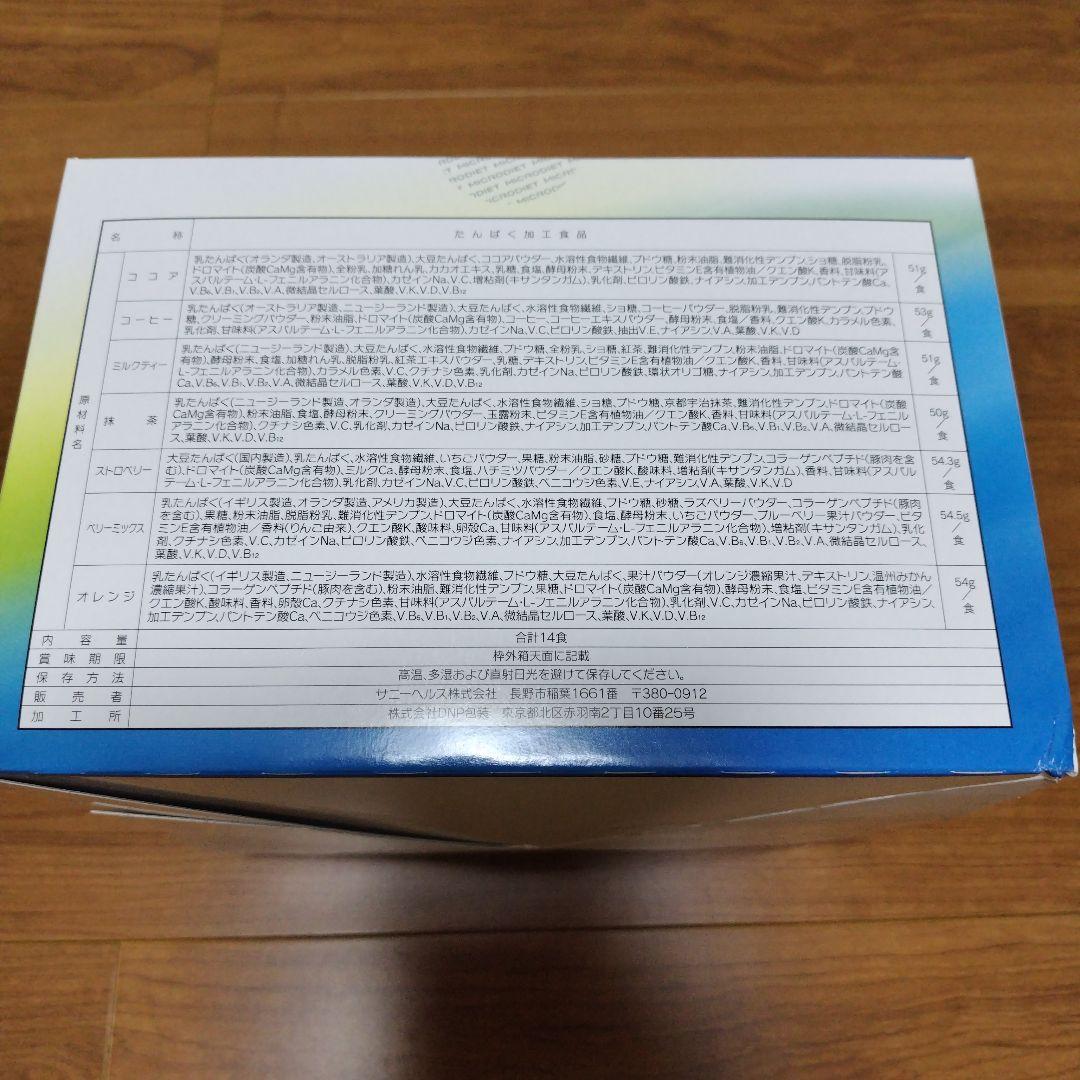 MICRODIET MICRODIET MICRO
名称 たんぱく加工食品
ココア 乳たんぱく(オランダ製造、オーストラリア製造)、大豆たんぱく、ココアパウダー、水溶性食物繊維、ブドウ糖、粉末油脂、難消化性デンプン、ショ糖、脱脂粉乳、
ドロマイト(炭酸CaMg含有物)、全粉乳、加糖れん乳、カカオエキス、乳糖、食塩、酵母粉末、デキストリン、ビタミンE含有植物油/クエン酸K、香料、甘味料(ア
スパルテーム・L-フェニルアラニン化合物)、カゼインNa、V.C、増粘剤(キサンタンガム)、乳化剤、ピロリン酸鉄、ナイアシン、加工デンプン、パントテン酸Ca、
V.B₆、V.B₁、V.B₂、V.A、微結晶セルロース、葉酸、V.K、V.D、V.B₁₂
51g/食
コーヒー 乳たんぱく(オーストラリア製造、ニュージーランド製造)、大豆たんぱく、水溶性食物繊維、ショ糖、コーヒーパウダー、脱脂粉乳、難消化性デンプン、ブドウ
糖、クリーミングパウダー、粉末油脂、ドロマイト(炭酸CaMg含有物)、コーヒー、コーヒーエキスパウダー、酵母粉末、食塩/香料、クエン酸K、カラメル色素、
乳化剤、甘味料(アスパルテーム・L-フェニルアラニン化合物)、カゼインNa、V.C、ピロリン酸鉄、抽出V.E、ナイアシン、V.A、葉酸、V.K、V.D
53g/食
ミルクティー 乳たんぱく(ニュージーランド製造)、大豆たんぱく、水溶性食物繊維、ブドウ糖、全粉乳、ショ糖、紅茶、難消化性デンプン、粉末油脂、ドロマイト(炭酸CaMg含
有物)、酵母粉末、食塩、加糖れん乳、脱脂粉乳、紅茶エキスパウダー、乳糖、デキストリン、ビタミンE含有植物油/クエン酸K、香料、甘味料(アスパルテーム・
L-フェニルアラニン化合物)、カラメル色素、V.C、クチナシ色素、乳化剤、カゼインNa、ピロリン酸鉄、環状オリゴ糖、ナイアシン、加工デンプン、パントテン酸
Ca、V.B₆、V.B₁、V.B₂、V.A、微結晶セルロース、葉酸、V.K、V.D、V.B₁₂
51g/食
原材料名
抹茶 乳たんぱく(ニュージーランド製造、オランダ製造)、大豆たんぱく、水溶性食物繊維、ショ糖、ブドウ糖、京都宇治抹茶、難消化性デンプン、ドロマイト(炭酸
CaMg含有物)、粉末油脂、食塩、酵母粉末、クリーミングパウダー、玉露粉末、ビタミンE含有植物油/クエン酸K、香料、甘味料(アスパルテーム・L-フェニル
アラニン化合物)、クチナシ色素、V.C、乳化剤、カゼインNa、ピロリン酸鉄、ナイアシン、加工デンプン、パントテン酸Ca、V.B₆、V.B₁、V.B₂、V.A、微結晶セルロー
ス、葉酸、V.K、V.D、V.B₁₂
50g/食
ストロベリー 大豆たんぱく(国内製造)、乳たんぱく、水溶性食物繊維、いちごパウダー、果糖、粉末油脂、砂糖、ブドウ糖、難消化性デンプン、コラーゲンペプチド(豚肉を含
む)、ドロマイト(炭酸CaMg含有物)、ミルクCa、酵母粉末、食塩、ハチミツパウダー/クエン酸K、酸味料、増粘剤(キサンタンガム)、香料、甘味料(アスパル
テーム・L-フェニルアラニン化合物)、乳化剤、カゼインNa、V.C、ピロリン酸鉄、ベニコウジ色素、V.E、ナイアシン、V.A、葉酸、V.K、V.D
54.3g/食
ベリーミックス 乳たんぱく(イギリス製造、オランダ製造、アメリカ製造)、大豆たんぱく、水溶性食物繊維、ブドウ糖、砂糖、ラズベリーパウダー、コラーゲンペプチド(豚肉
を含む)、果糖、粉末油脂、脱脂粉乳、難消化性デンプン、ドロマイト(炭酸CaMg含有物)、食塩、酵母粉末、いちごパウダー、ブルーベリー果汁パウダー、ビタ
ミンE含有植物油/香料(りんご由来)、クエン酸K、酸味料、卵殻Ca、甘味料(アスパルテーム・L-フェニルアラニン化合物)、増粘剤(キサンタンガム)、乳化
剤、クチナシ色素、V.C、カゼインNa、ピロリン酸鉄、ベニコウジ色素、ナイアシン、加工デンプン、パントテン酸Ca、V.B₆、V.B₁、V.B₂、V.A、微結晶セルロース、
葉酸、V.K、V.D、V.B₁₂
54.5g/食
オレンジ 乳たんぱく(イギリス製造、ニュージーランド製造)、水溶性食物繊維、ブドウ糖、大豆たんぱく、果汁パウダー(オレンジ濃縮果汁、デキストリン、温州みかん
濃縮果汁)、コラーゲンペプチド(豚肉を含む)、粉末油脂、難消化性デンプン、果糖、ドロマイト(炭酸CaMg含有物)、酵母粉末、食塩、ビタミンE含有植物油/
クエン酸K、酸味料、香料、卵殻Ca、クチナシ色素、甘味料(アスパルテーム・L-フェニルアラニン化合物)、乳化剤、V.C、カゼインNa、ピロリン酸鉄、ナイアシン、
加工デンプン、パントテン酸Ca、ベニコウジ色素、V.B₆、V.B₁、V.B₂、V.A、微結晶セルロース、葉酸、V.K、V.D、V.B₁₂
54g/食
内容量 合計14食
賞味期限 枠外箱天面に記載
保存方法 高温、多湿および直射日光を避けて保存してください。
販売者 サニーヘルス株式会社 長野市稲葉1661番 〒380-0912
加工所 株式会社DNP包装 東京都北区赤羽南2丁目10番25号